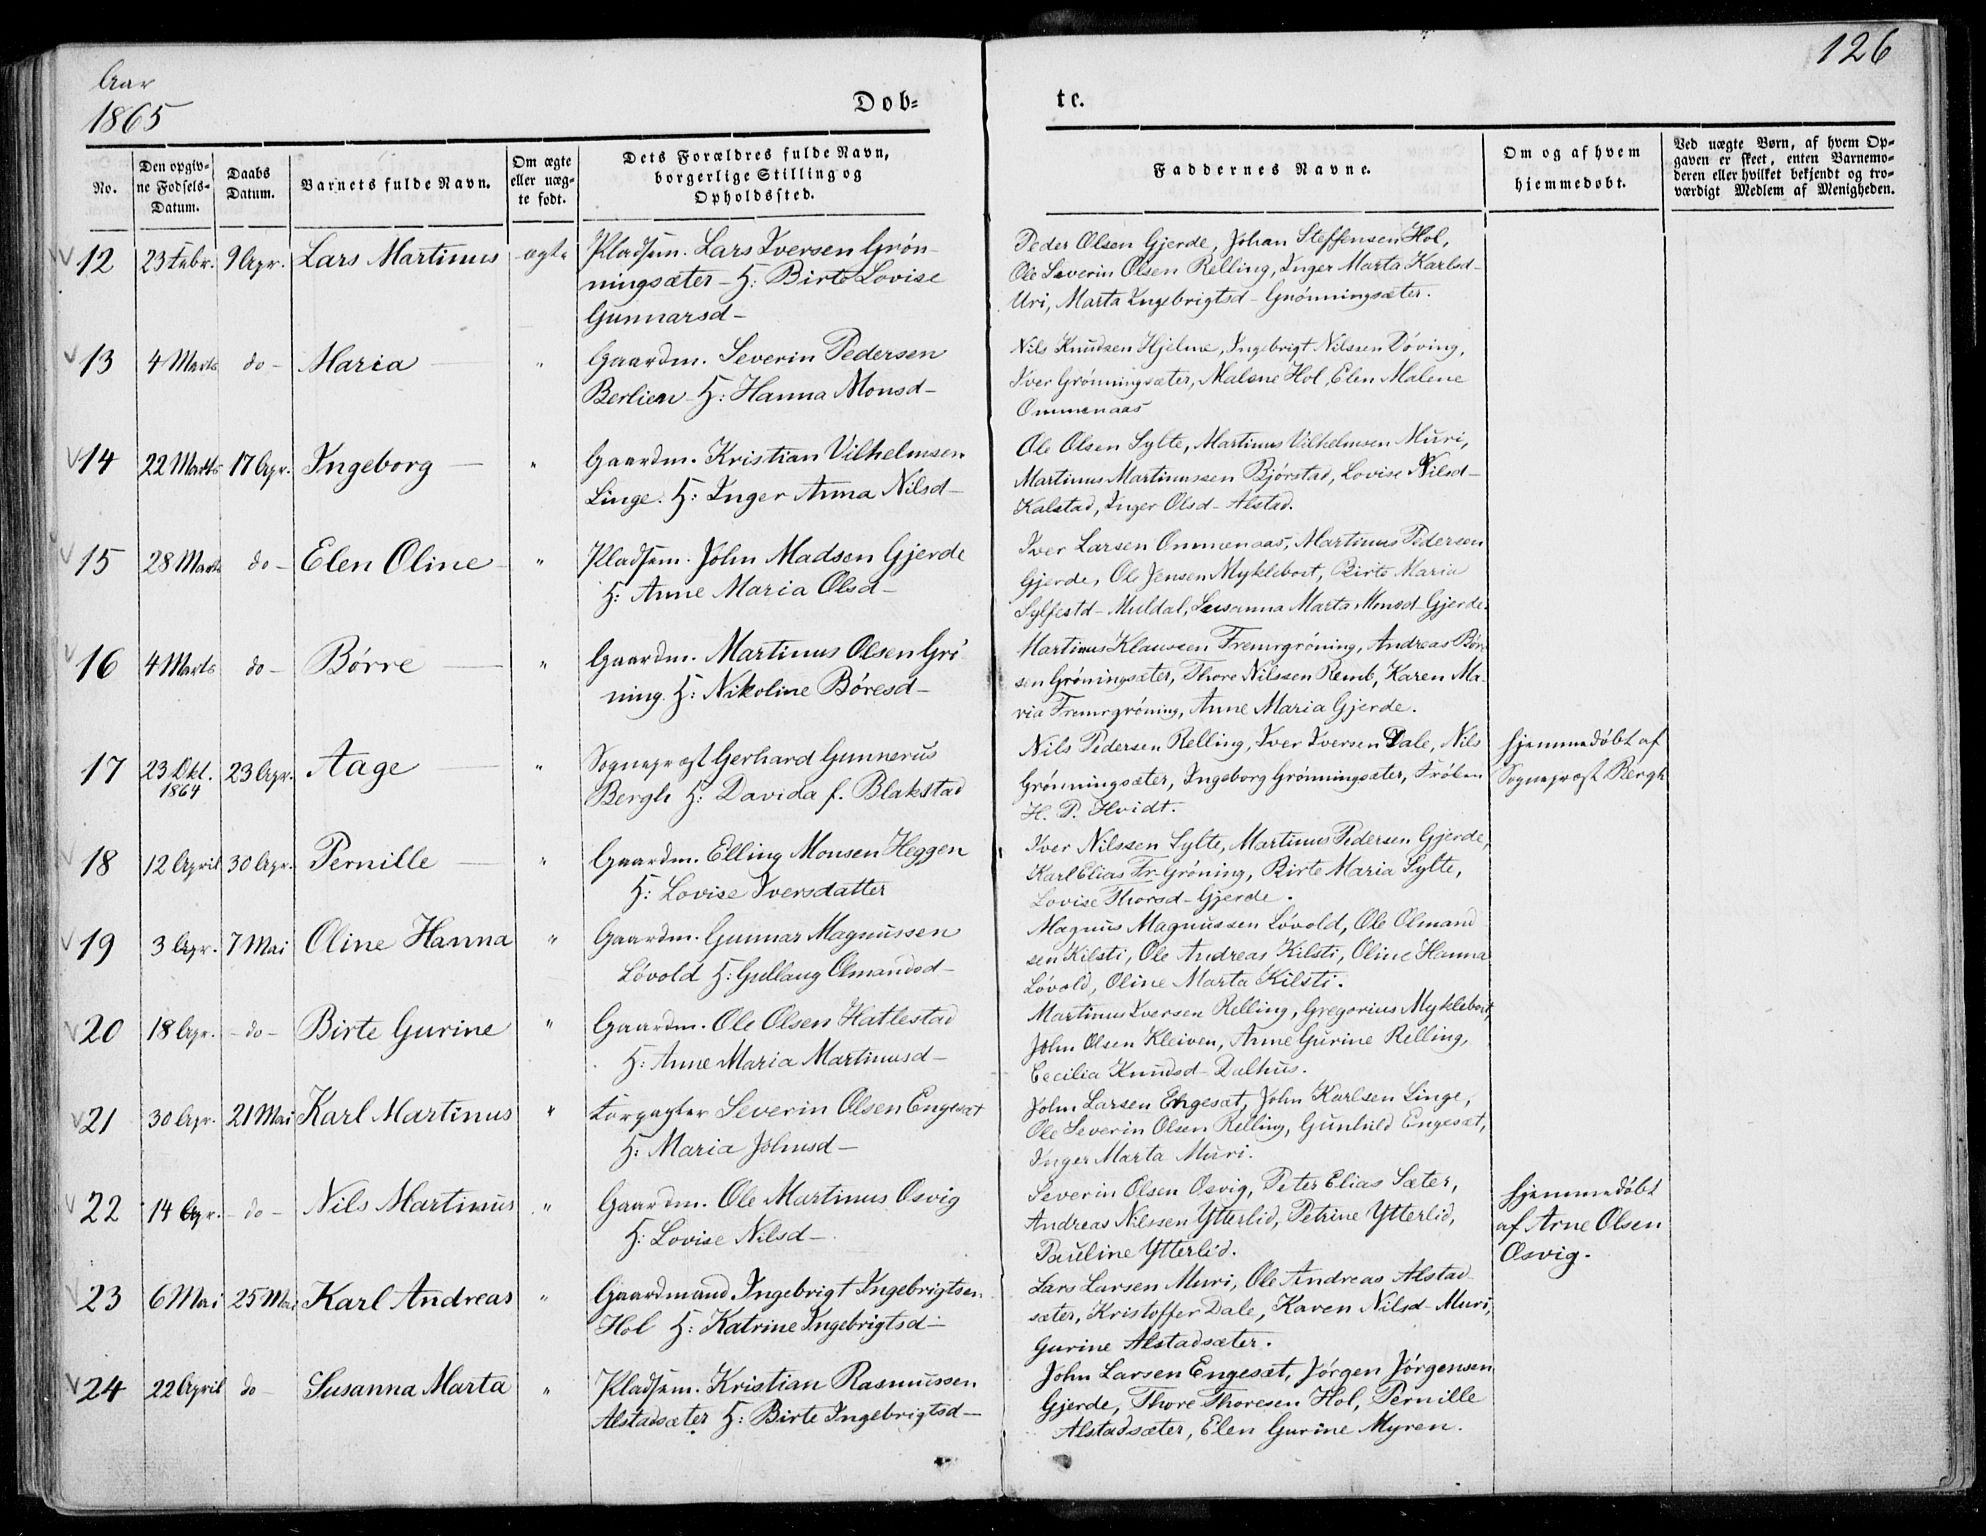 126
Aar
1865
Døb=
te.
No.
Den opgiv-
ne Fødsels-
Datum.
Daabs
Datum.
Barnets fulde Navn.
Om ægte
eller uæg-
te født.
Dets Forældres fulde Navn,
borgerlige Stilling og
Opholdssted.
Faddernes Navne.
Om og af hvem
hjemmedøbt.
Ved uægte Børn, af hvem Op-
gaven er skeet, enten Barnemo-
deren eller hvilket bekjendt og tro-
værdigt Medlem af Menigheden.
12 23 Febr. 9 Apr. Lars Martinus ægte Pladsm. Lars Iversen Grøn-
ningsæter - H: Birte Lovise
Gunnarsd-
Peder Olsen Gjerde, Johan Steffensen Hol,
Ole Severin Olsen Relling, Inger Marta Karlsd-
Uri, Marta Ingebrigtsd- Grønningsæter.
13 4 Marts do- Maria " Gaardm. Severin Pedersen
Berlien - H: Hanna Monsd-
Nils Knudsen Hjelme, Ingebrigt Nilssen Døving,
Iver Grønningsæter, Malene Hol, Elen Malene
Ommenaas
14 22 Marts 17 Apr. Ingeborg " Gaardm. Kristian Vilhelmsen
Linge. H: Inger Anna Nilsd-
Ole Olsen Sylte, Martinus Vilhelmsen Muri,
Martinus Martinussen Bjørstad, Lovise Nilsd-
Kalstad, Inger Olsd- Alstad.
15 28 Marts do- Elen Oline " Pladsm. John Madsen Gjerde
H: Anne Maria Olsd-
Iver Larsen Ommenaas, Martinus Pedersen
Gjerde, Ole Jensen Myklebost, Birte Maria
Sylfestd- Muldal, Susanna Marta Monsd- Gjerde.
16 4 Marts do- Børre " Gaardm. Martinus Olsen Grø
ning. H: Nikoline Børesd-
Martinus Klaussen Fremrgrøning, Andreas Bør
sen Grøningsæter, Thore Nilssen Remb, Karen Ma-
ria Fremrgrøning, Anne Maria Gjerde.
17 23 Okt. 1864 23 Apr. Aage " Sognepræst Gerhard Gunnerus
Bergh H: Davida f. Blakstad
Nils Pedersen Relling, Iver Iversen Dale, Nils
Grønningsæter, Ingeborg Grønningsæter, Frøken
H. P. Hvidt.
Hjemmedøbt af
Sognepræst Bergh
18 12 April 30 Apr. Pernille " Gaardm. Elling Monsen Heggen
H: Lovise Iversdatter
Iver Nilssen Sylte, Martinus Pedersen Gjerde,
Karl Elias Fr-Grøning, Birte Maria Sylte,
Lovise Thorsd- Gjerde.
19 3 Apr. 7 Mai Oline Hanna " Gaardm. Gunnar Magnussen
Løvold H: Gullaug Olmandsd-
Magnus Magnussen Løvold, Ole Olmand
sen Kilsti, Ole Andreas Kilsti, Oline Hanna
Løvold, Oline Marta Kilsti.
20 18 Apr. - do - Birte Gurine " Gaardm. Ole Olsen Hattestad
H: Anne Maria Martinusd-
Martinus Iversen Relling, Gregorius Myklebost,
John Olsen Kleiven, Anne Gurine Relling,
Cecilia Knudsd- Dalhus.
21 30 Apr. 21 Mai Karl Martinus " Forpagter Severin Olsen Engesæt
H: Maria Johnsd-
John Larsen Engesæt, John Karlsen Linge,
Ole Severin Olsen Relling, Gunhild Engesæt,
Inger Marta Muri.
22 14 Apr. - do - Nils Martinus " Gaardm. Ole Martinus Osvig
H: Lovise Nilsd-
Severin Olsen Osvig, Peter Elias Sæter,
Andreas Nilssen Ytterlid, Petrine Ytterlid,
Pauline Ytterlid.
Hjemmedøbt
af Arne Olsen
Osvig.
23 6 Mai 25 Mai Karl Andreas " Gaardmand Ingebrigt Ingebrigtsen
Hol H: Katrine Ingebrigtsd-
Lars Larsen Muri, Ole Andreas Alstad-
sæter, Kristoffer Dale, Karen Nilsd- Muri,
Gurine Alstadsæter.
24 22 April do Susanna Marta " Pladsm. Kristian Rasmussen
Alstadsæter H: Birte Ingebrigtsd-
John Larsen Engesæt, Jørgen Jørgensen
Gjerde, Thore Thoresen Hol, Pernille
Alstadsæter, Elen Gurine Myren.